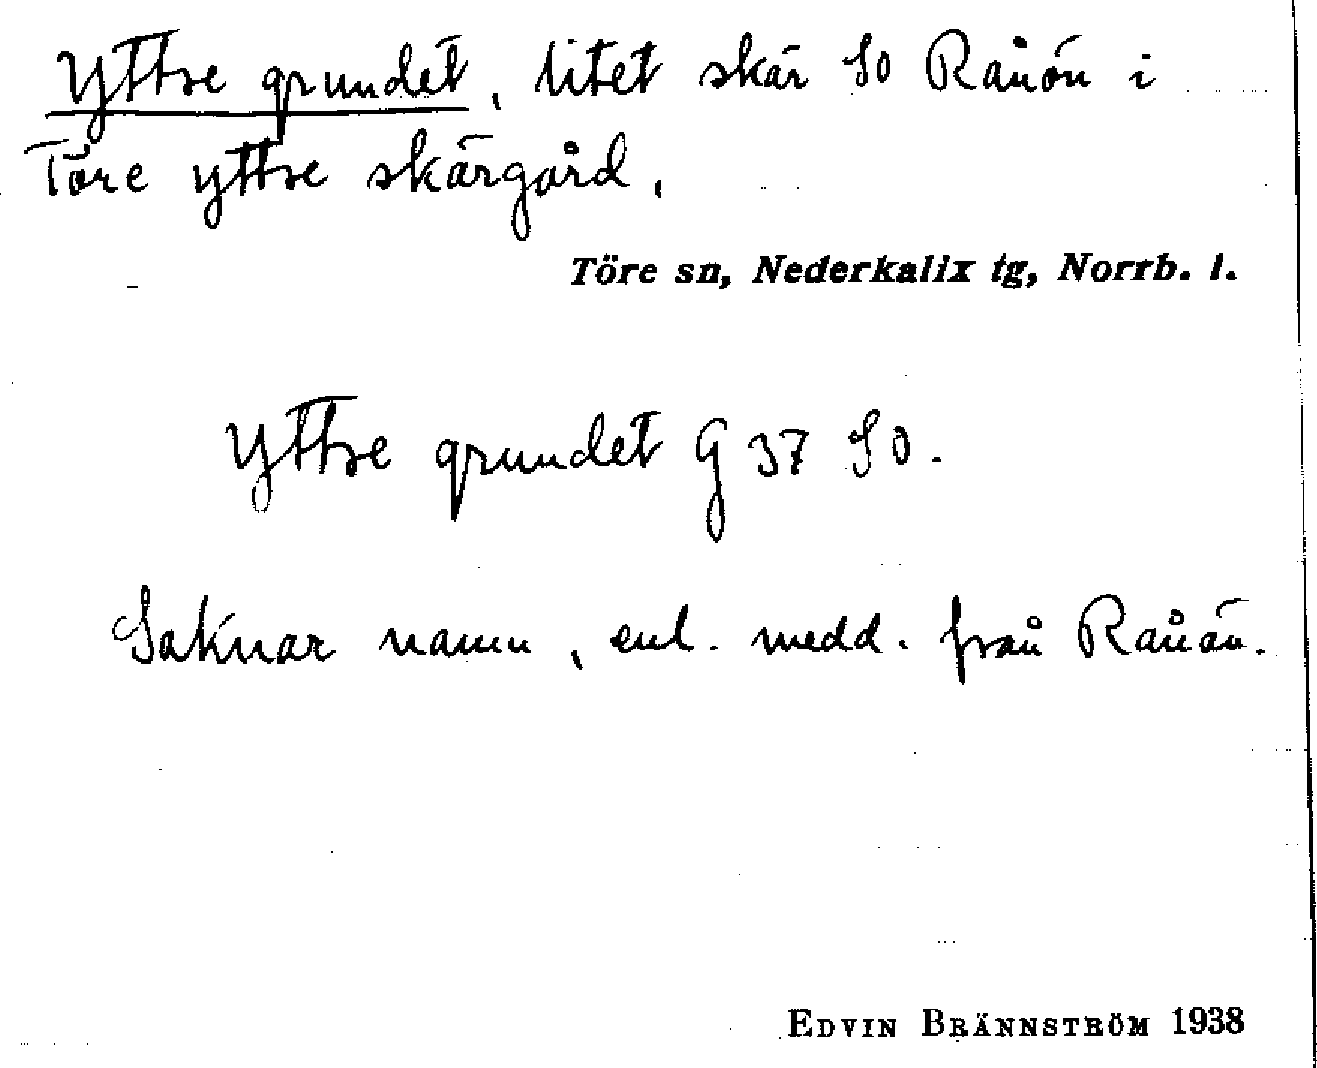 Yttre grundet, litet skär SO Rånön i
Töre yttre skärgård.
Töre sn, Nederkalix tg, Norrb. l.
Yttre grundet G 37 SO.
Saknar namn, enl. medd. från Rånön.
EDVIN BRÄNNSTRÖM 1938